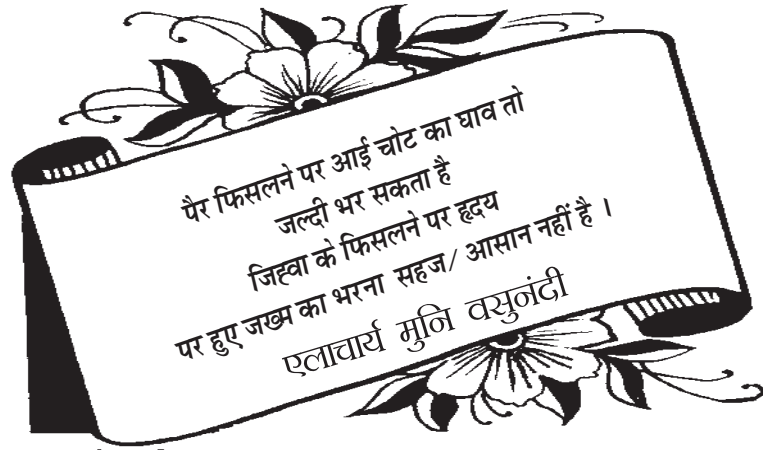 पैर फिसलने पर आई चोट का घाव तो
जल्दी भर सकता है
जिह्वा के फिसलने पर हृदय
पर हुए जख्म का भरना सहज/ आसान नहीं है ।
एलाचार्य मुनि वसुनंदी